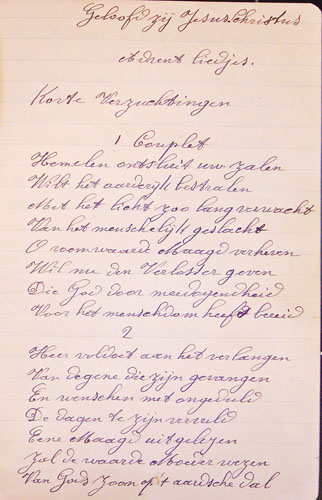 Geloofd zij Jesus Christus
Advent liedjes.
Korte Verzuchtingen
1 Couplet
Hemelen ontsluit uw zalen
Wilt het aardrijk bestralen
Met het licht zoo lang verwacht
Van het menschelijk geslacht
O roemwaarde Maagd verheven
Wil nu den Verlosser geven
Die God door meedogendheid
Voor het menschdom heeft bereid
2
Heer voldoet aan het verlangen
Van degene die zijn gevangen
En wenschen met ongeduld
De dagen te zijn vervuld
Eene Maagd uitgelezen
Zal de waarde Moeder wezen
Van Gods Zoon op 't aardsche dal